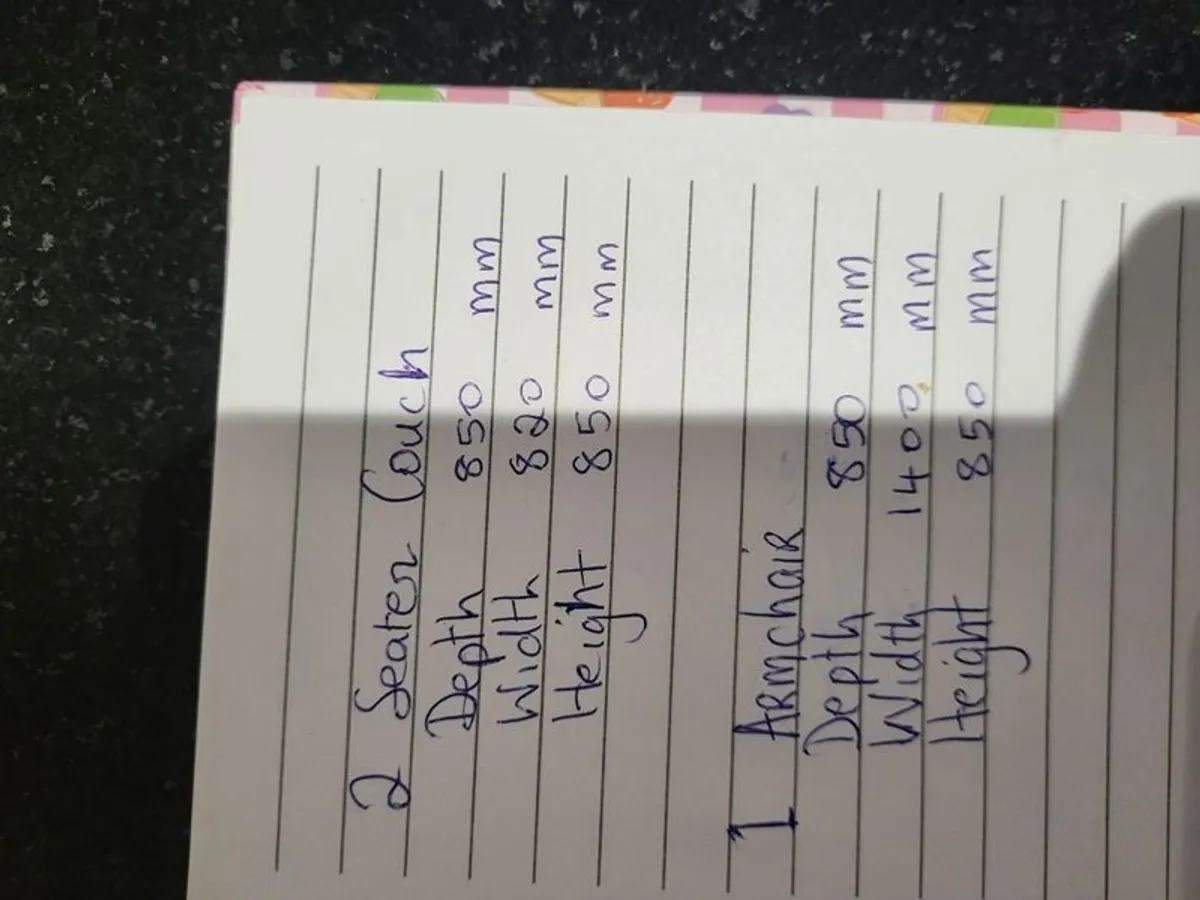 2 Seater Couch
Depth 850 mm
Width 820 mm
Height 850 mm
1 Armchair
Depth 850 mm
Width 1400 mm
Height 850 mm